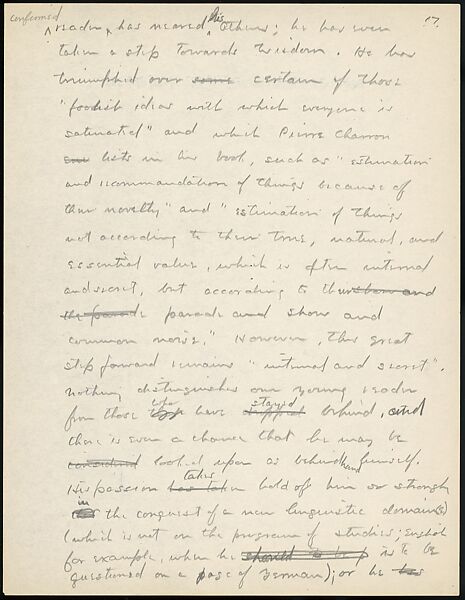 confirmed 17.
reader has neared his Others; he has even
taken a step towards Wisdom. He has
triumphed over some certain of those
"foolish ideas with which everyone is
satiated" and which Pierre Charron
lists in his book, such as "estimation
and recommendation of things because of
their novelty" and "estimation of things
not according to their true, natural, and
essential value, which is often internal
and secret, but according to the show and
the parade parade and show and
common noise." However, this great
step forward remains "internal and secret".
Nothing distinguishes our young reader
who stayed
from those have stopped behind, and
there is even a chance that he may be
considered looked upon as behindhand himself.
takes
His passion has taken hold of him so strongly
in
the conquest of a new linguistic domain(s)
(which is not on the program of studies; English
for example, when he should to be is to be
questioned on a page of German); or he has